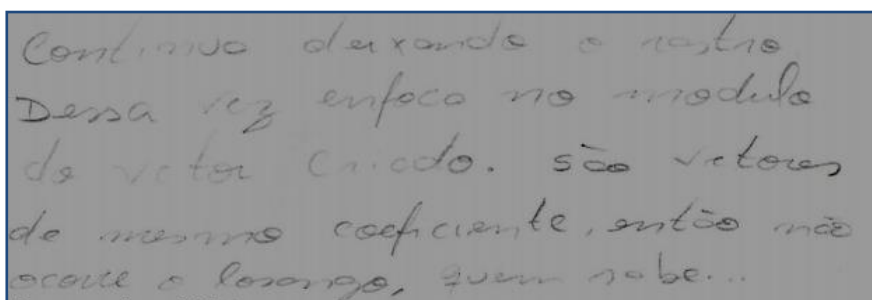 Continuo deixando o rastro
Dessa vez enfoco no modulo
do vetor criado. são vetores
de mesmo coeficiente, então não
ocorre o losango, quem sabe...